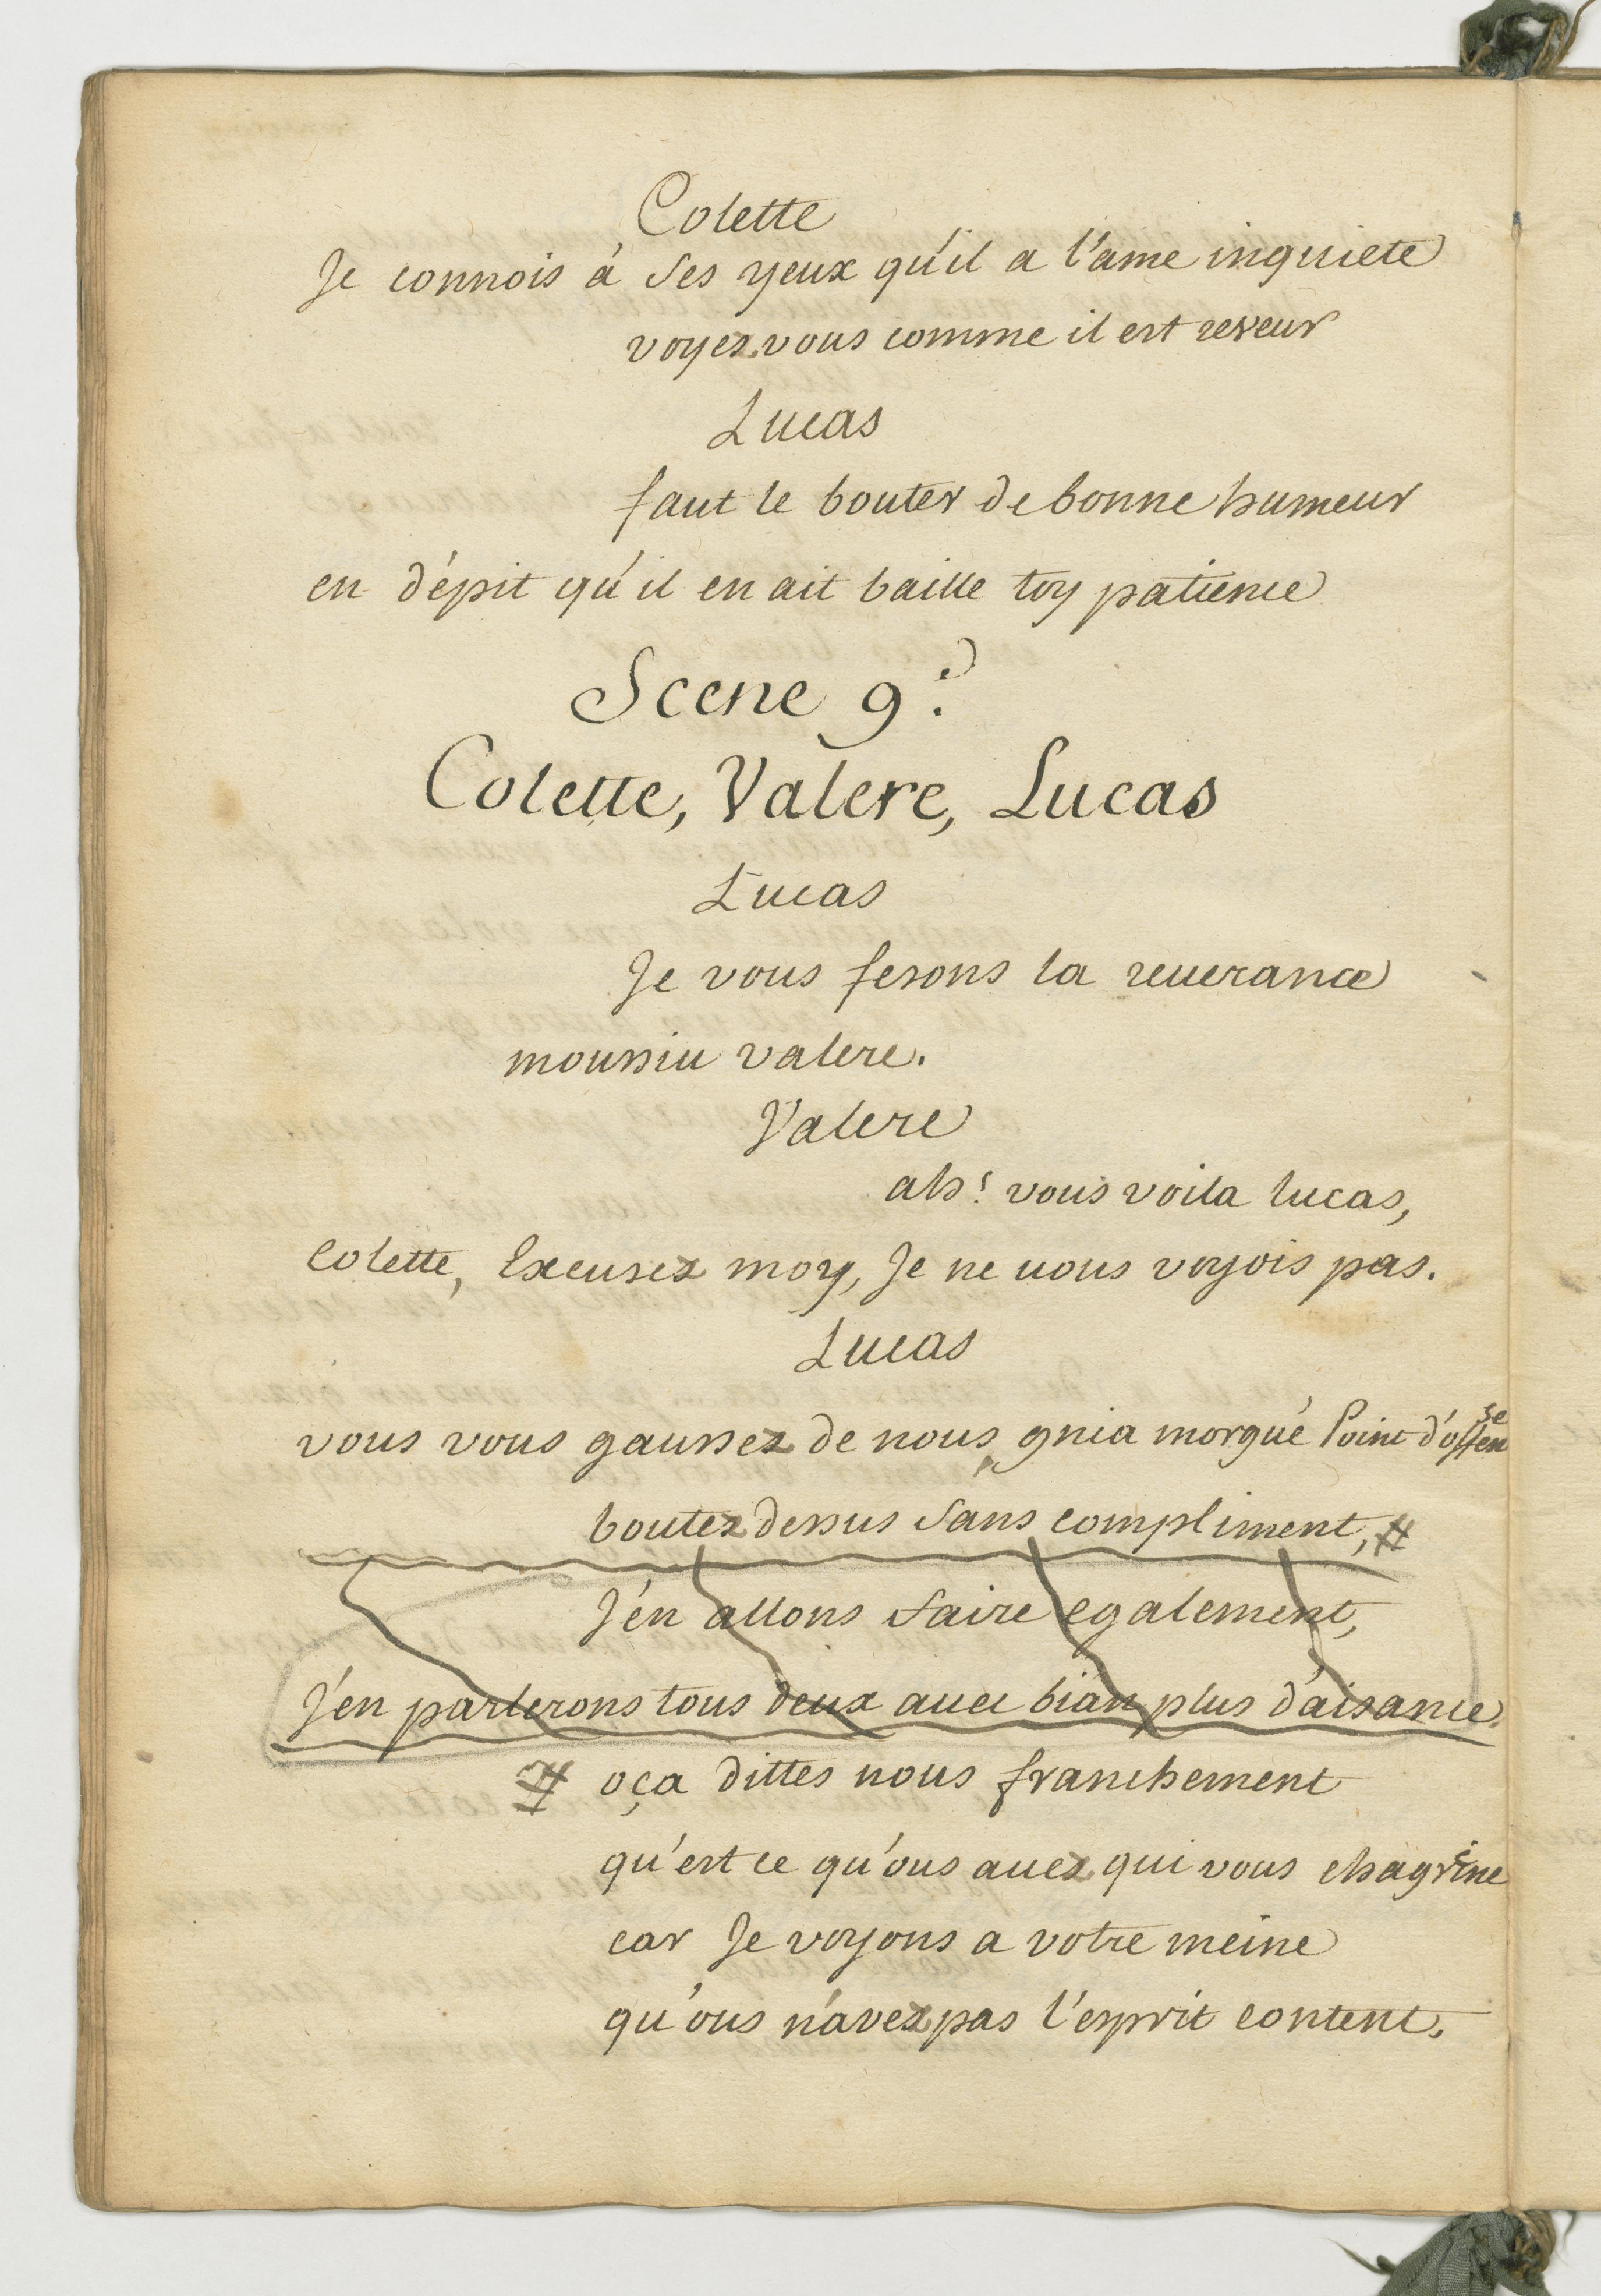 Colette
Je connois à Ses yeux qu'il a l'ame inquiete
voyez vous comme il est reveur
Lucas
faut le bouter de bonne humeur
en dépit qu'il en ait baille toy patience
Scene 9.e
Colette, Valere, Lucas
Lucas
Je vous ferons la reuerance
moussiu valere.
Valere
ah! vous voila lucas,
Colette, Excusez moy, Je ne uous voyois pas.
Lucas
vous vous gaussez de nous, gnia morgué Point d'offense
boutez dessus Sans compliment, #
J'en allons faire egalement,
J'en parlerons tous deux auec bian plus d'aisance.
# oça dittes nous franchement
qu'est ce qu'ous auez qui vous chagrine
car Je voyons a votre meine
qu'ous n'avez pas l'esprit content.